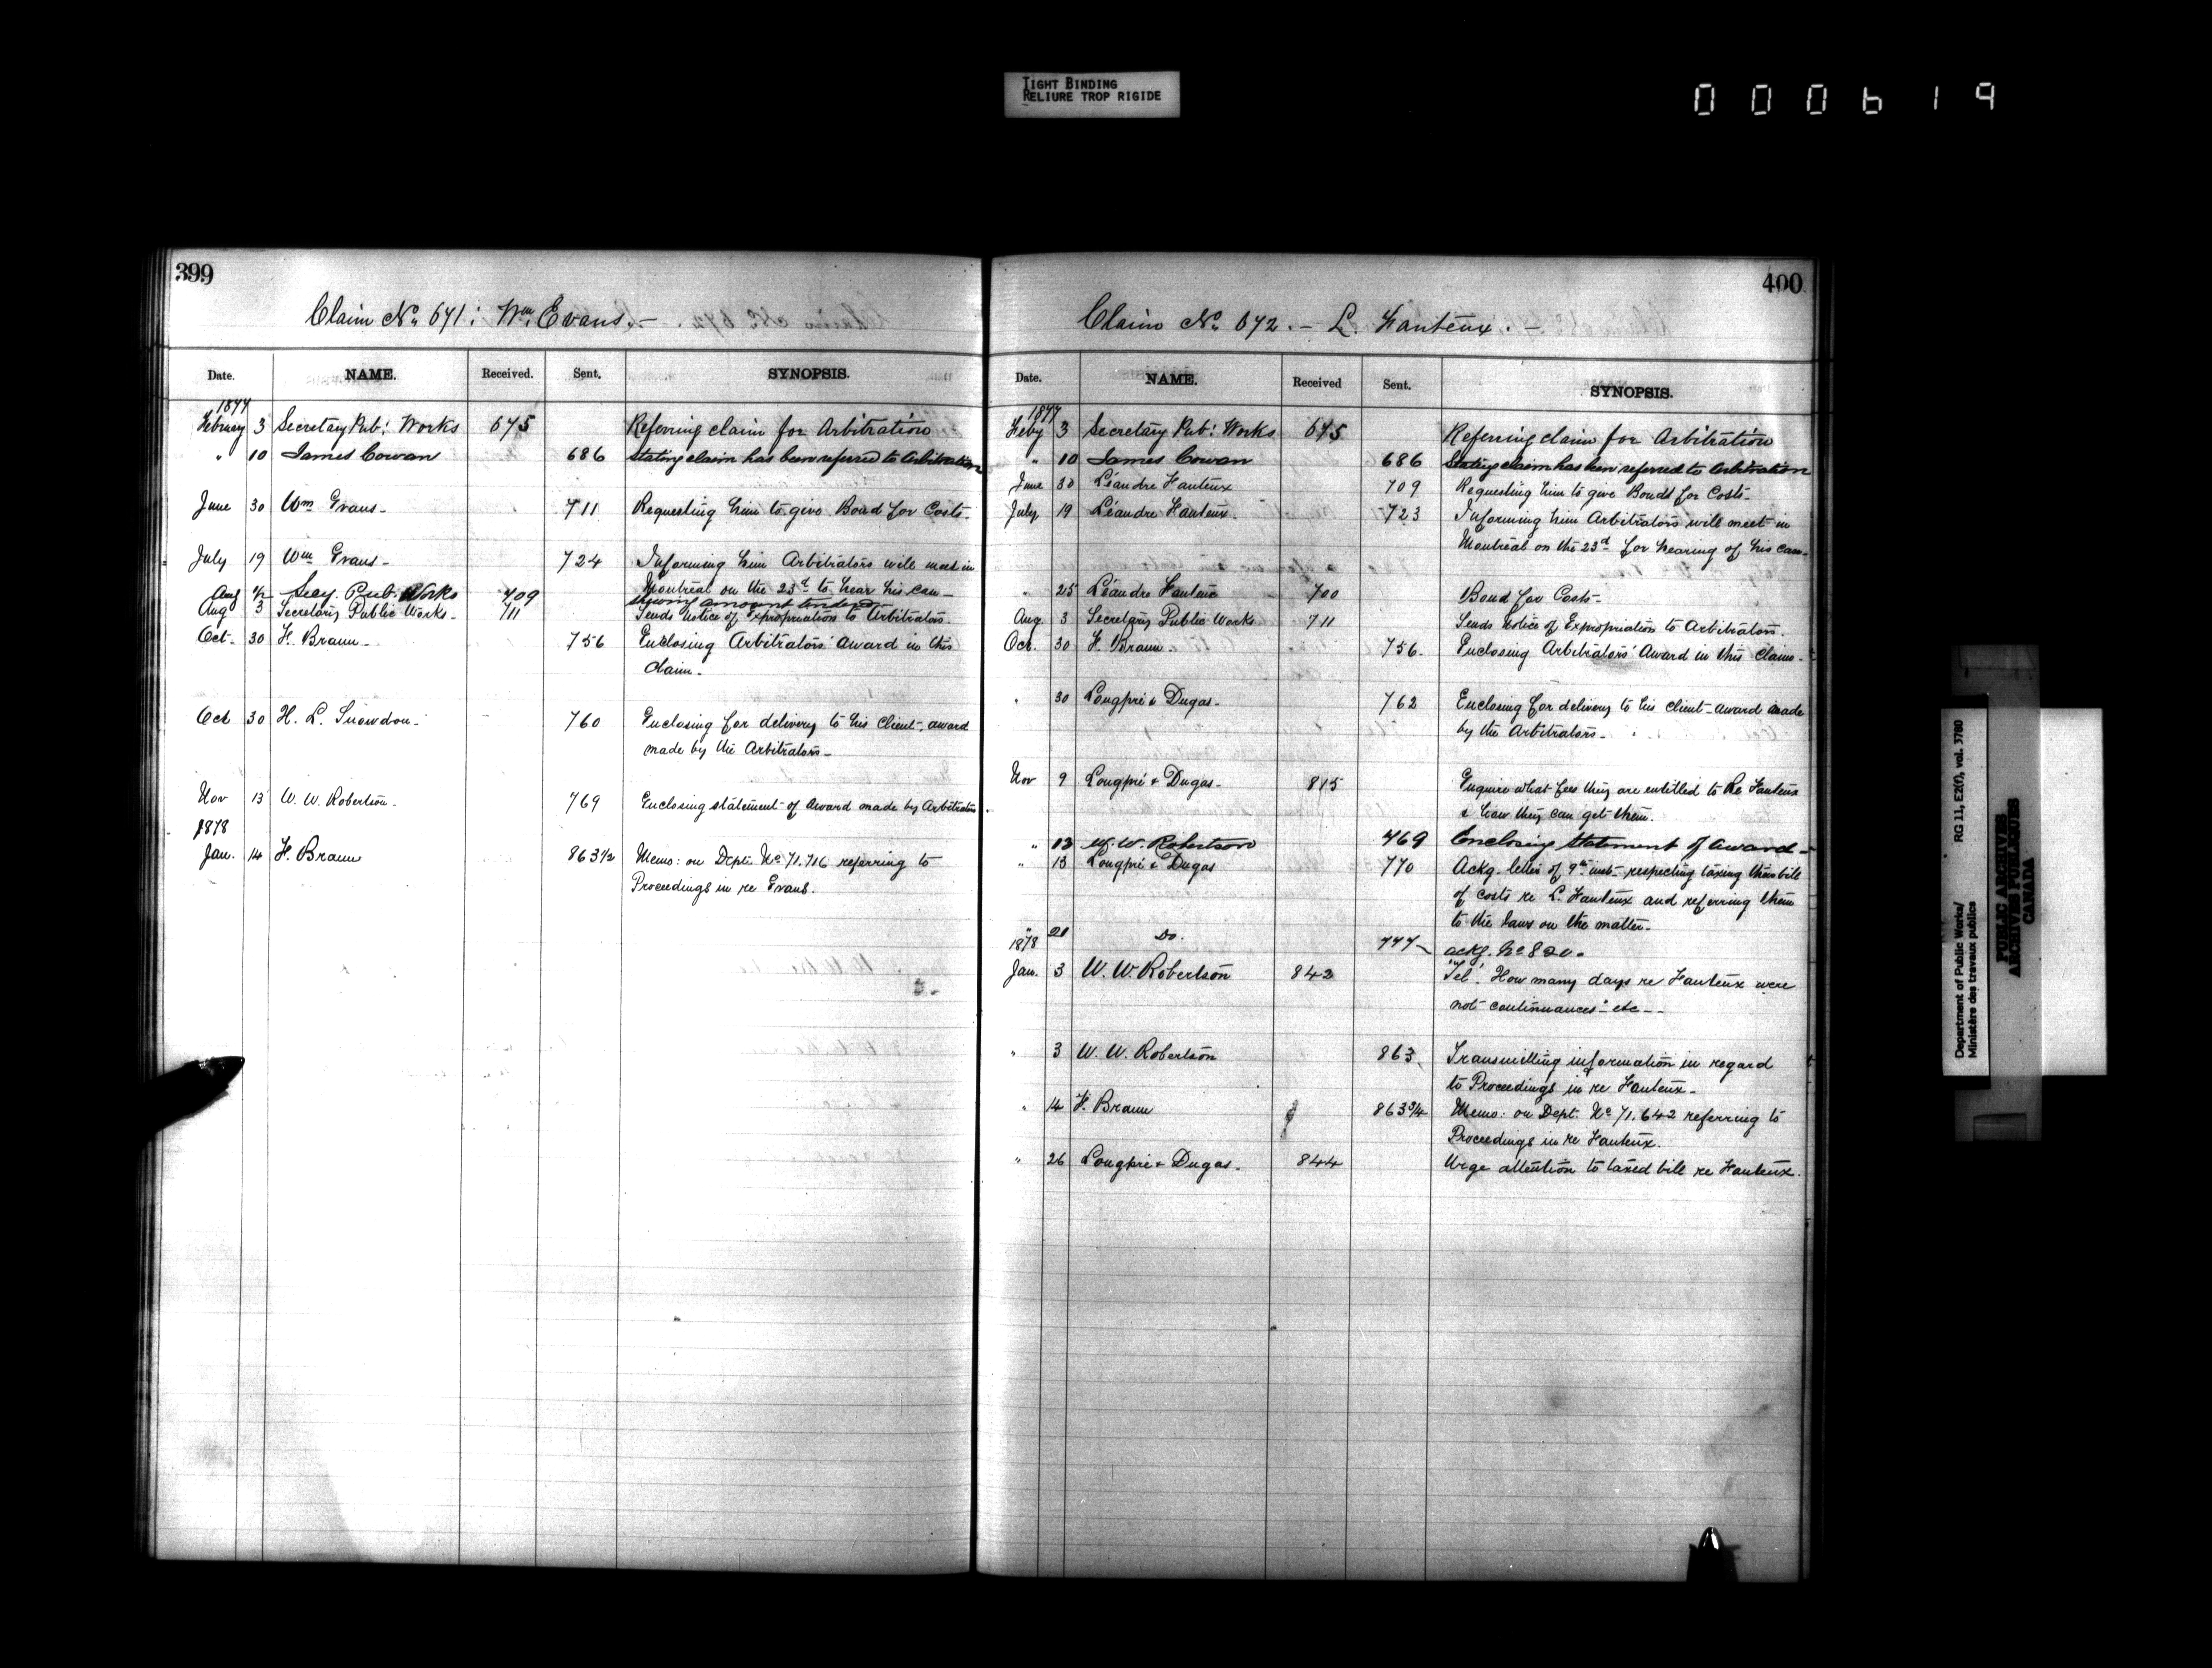 TIGHT BINDING
RELIURE TROP RIGIDE
000619
399
Claim No. 671: Wm. Evans. –
Date. NAME. Received. Sent. SYNOPSIS.
1877
February 3 Secretary Pub: Works 675 Referring claim for Arbitration
" 10 James Cowan 686 Stating claim has been referred to Arbitration
June 30 Wm Evans - 711 Requesting him to give Bond for Costs -
July 19 Wm Evans - 724 Informing him Arbitrators will meet in
Montreal on the 23d to hear his case -
Aug 1/2 Secy. Pub. Works 709 showing amount tendered
Aug 3 Secretary Public Works - 711 Sends Notice of Expropriation to Arbitrators.
Oct - 30 F. Braun - 756 Enclosing Arbitrators' Award in this
Claim -
Oct 30 H. L. Snowdon - 760 Enclosing for delivery to his Client, award
made by the Arbitrators -
Nov 13 W. W. Robertson - 769 Enclosing statement of Award made by Arbitrators
1878
Jan. 14 F. Braun 863 1/2 Memo: on Dept. No 71.716 referring to
Proceedings in re Evans.
400
Claim No. 672. – L. Fauteux. –
Date. NAME. Received Sent. SYNOPSIS.
1877
Feby 3 Secretary Pub: Works 675 Referring claim for Arbitration
" 10 James Cowan 686 Stating claim has been referred to Arbitration
June 30 Léandre Fauteux 709 Requesting him to give Bond for Costs -
July 19 Léandre Fauteux 723 Informing him Arbitrators will meet in
Montreal on the 23d for hearing of his case -
" 25 Léandre Fauteux 700 Bond for Costs -
Aug. 3 Secretary Public Works 711 Sends Notice of Expropriation to Arbitrators.
Oct. 30 F. Braun - 756. Enclosing Arbitrators' Award in this Claim -
" 30 Longpré & Dugas - 762 Enclosing for delivery to his Client award made
by the Arbitrators -
Nov 9 Longpré & Dugas - 815 Enquire what fees they are entitled to Re Fauteux
& how they can get them.
" 13 W. W. Robertson 769 Enclosing Statement of Award -
" 13 Longpré & Dugas 770 Ackg. letter of 9th inst - respecting taxing their bill
of costs re L. Fauteux and referring them
to the Laws on the matter -
" 21 Do. 777 ackg. No 820.
1878
Jan. 3 W. W. Robertson 842 "Tel". How many days re Fauteux were
not "continuances" etc - -
" 3 W. W. Robertson 863 Transmitting information in regard
to Proceedings in re Fauteux -
" 14 F. Braun 863 3/4 Memo: on Dept. No 71.642 referring to
Proceedings in re Fauteux.
" 26 Longpré & Dugas - 844 Urge attention to taxed bill re Fauteux.
Department of Public Works/ RG 11, E2(f), vol. 3780
Ministère des travaux publics
PUBLIC ARCHIVES
ARCHIVES PUBLIQUES
CANADA